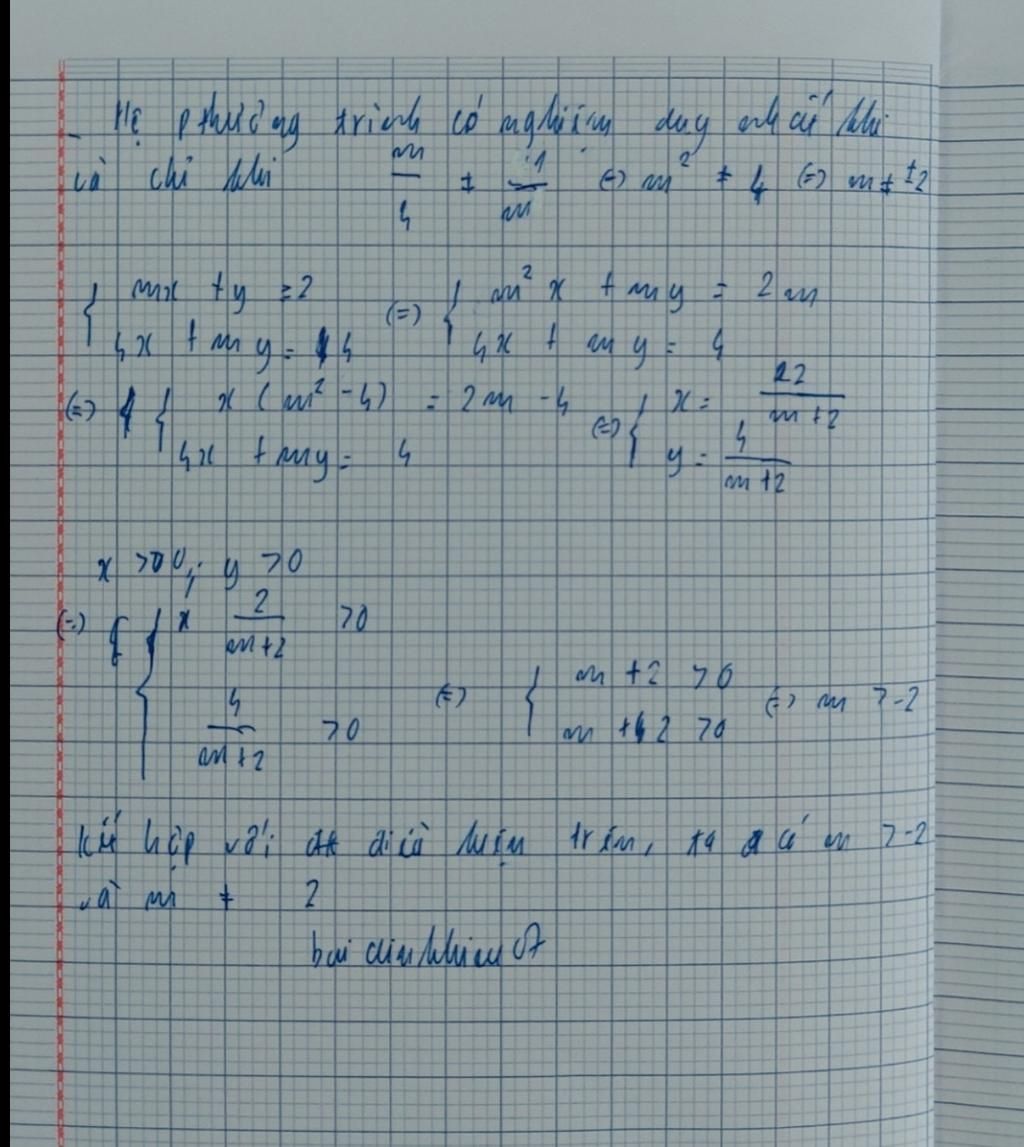 - Hệ phương trình có nghiệm duy nhất khi
và chỉ khi m/4 ≠ 1/m (=) m² ≠ 4 (=) m ≠ ±2
{ mx + y = 2 (=) { m²x + my = 2m
4x + my = 4 4x + my = 4
(=) { x(m² - 4) = 2m - 4 (=) { x = 2/(m+2)
4x + my = 4 y = 4/(m+2)
x > 0, y > 0
(=) { 2/(m+2) > 0
4/(m+2) > 0 (=) { m + 2 > 0 (=) m > -2
m + 2 > 0
Kết hợp với điều kiện trên, ta có m > -2
và m ≠ 2